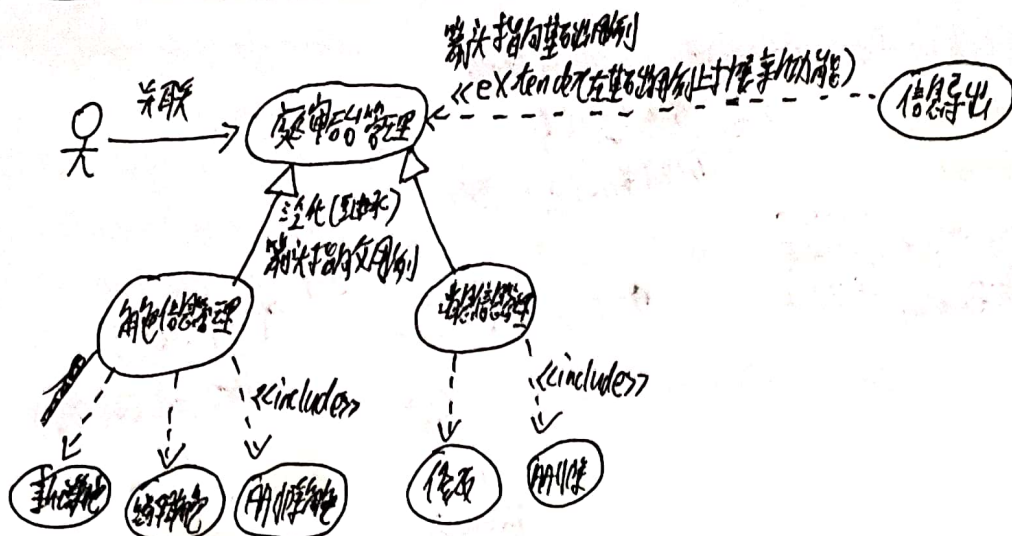 箭头指向基础用例
<<extend(在基础用例上扩展新功能)
关联
管理
信息导出
泛化(继承)
箭头指向父用例
角色信息管理
信息管理
<<include>>
<<include>>
新增角色
编辑角色
删除角色
修改
删除